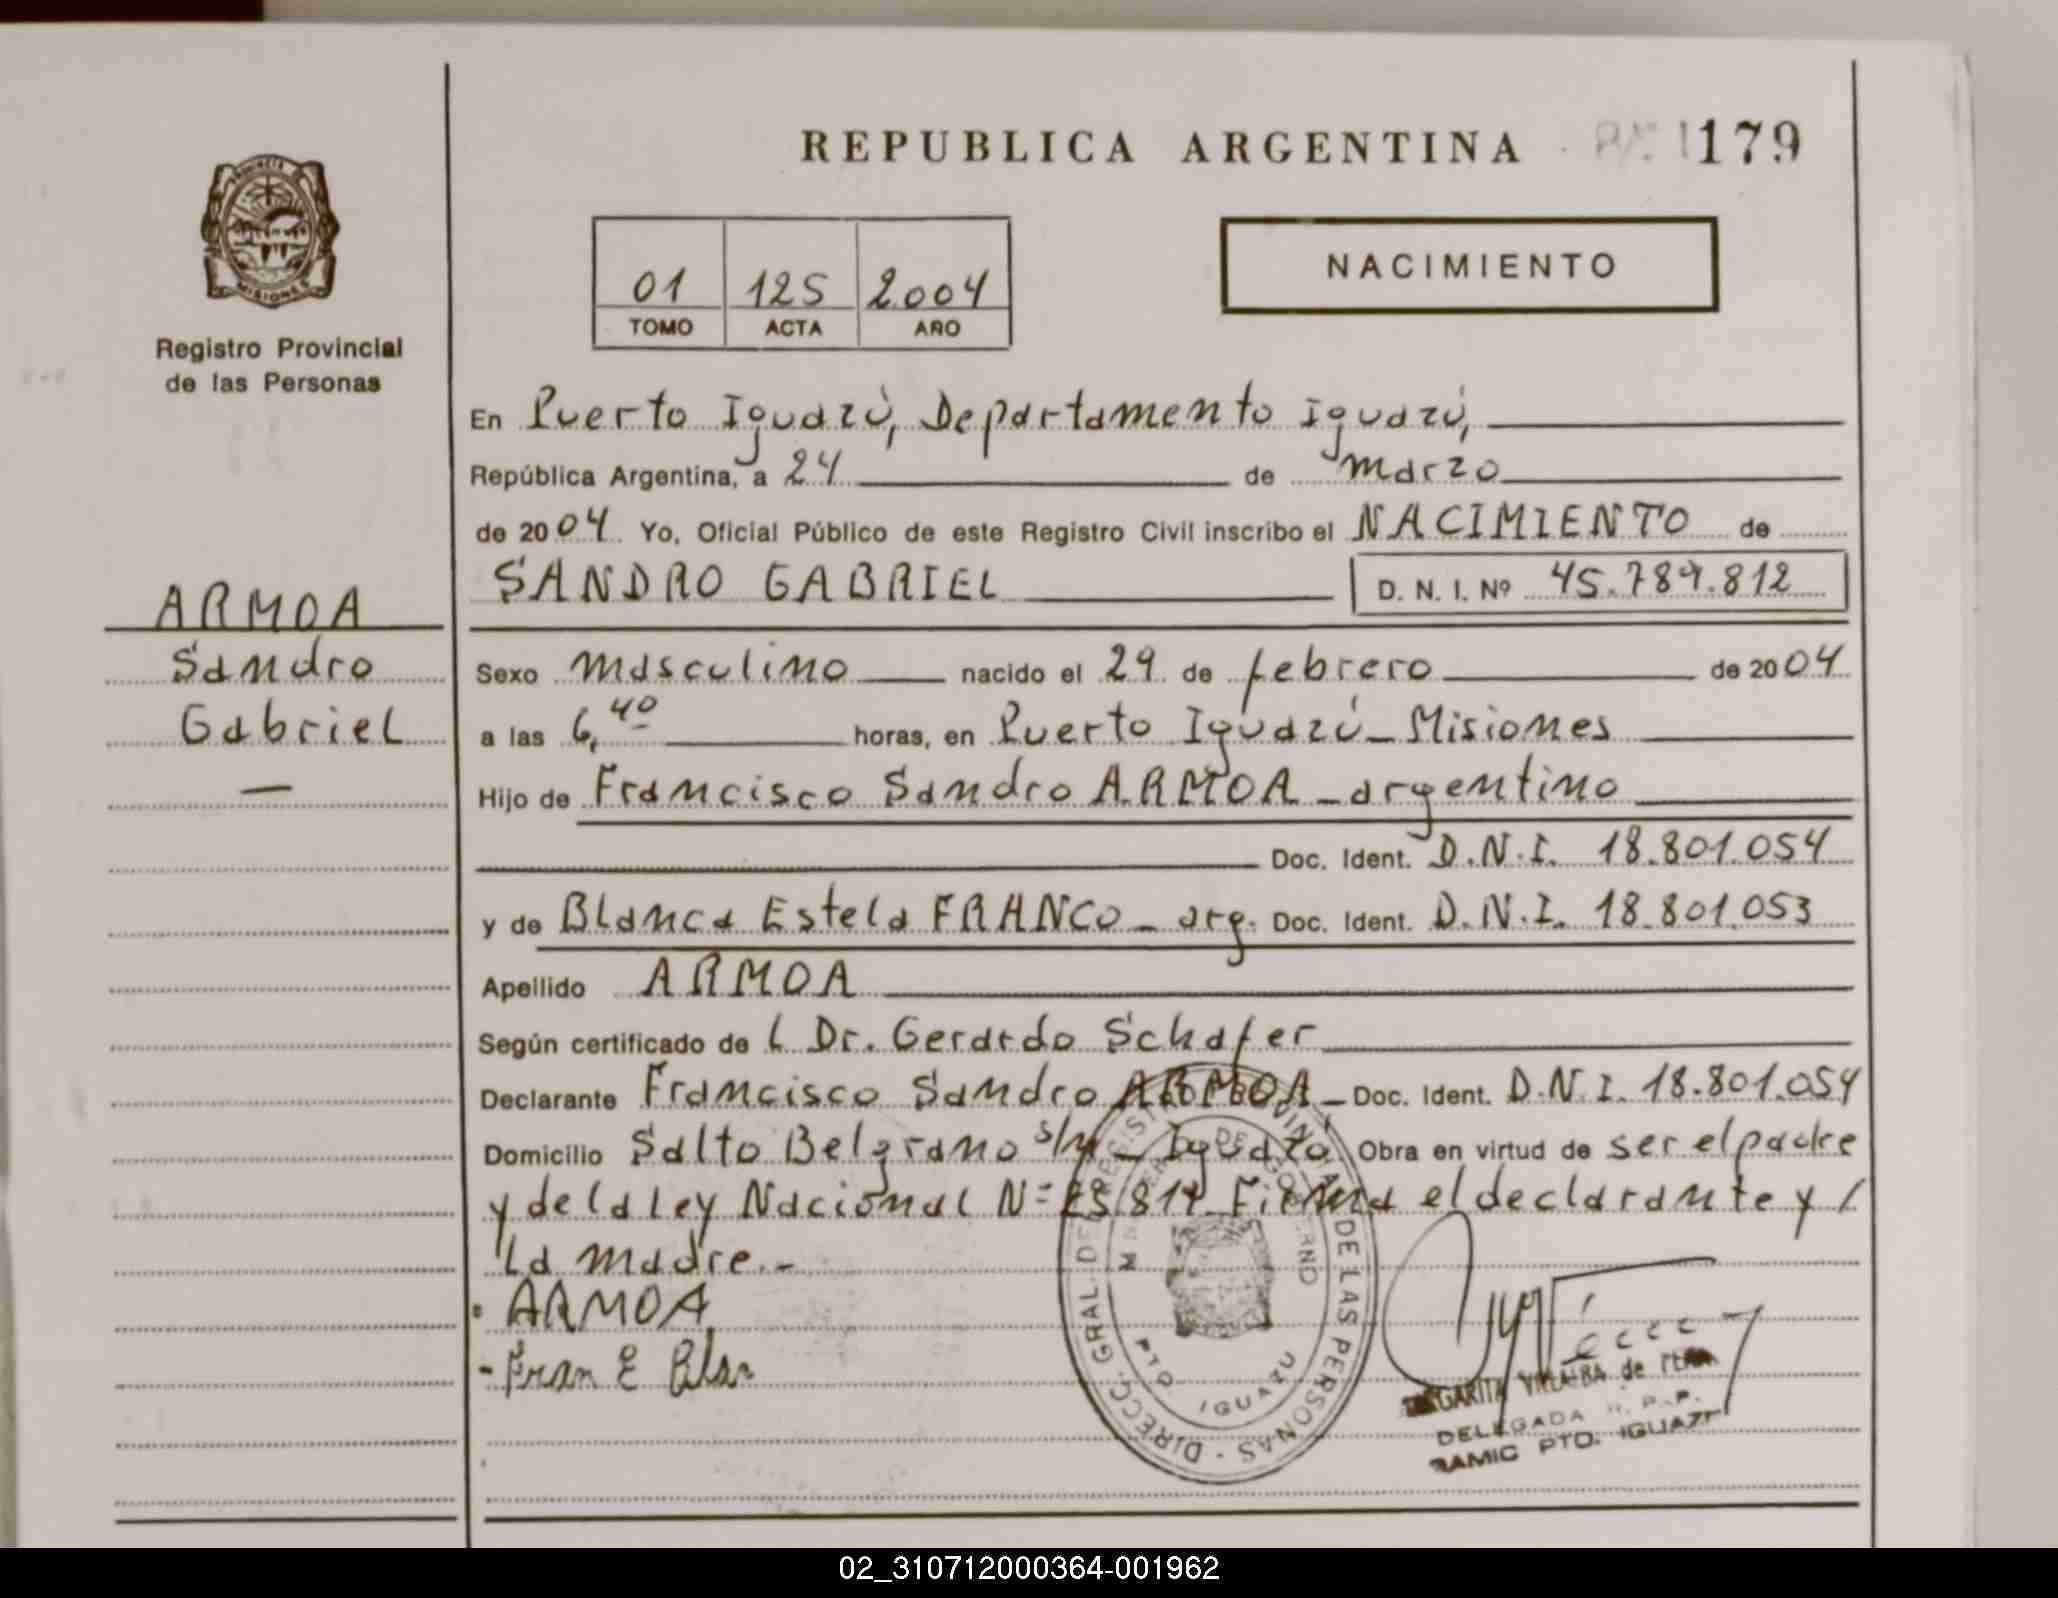 REPUBLICA ARGENTINA
179
PROVINCIA
MISIONES
Registro Provincial
de las Personas
01 125 2.004
TOMO ACTA AÑO
NACIMIENTO
En Puerto Iguazú, Departamento Iguazú,
República Argentina, a 24 de marzo
de 2004 Yo, Oficial Público de este Registro Civil inscribo el NACIMIENTO de
SANDRO GABRIEL D. N. I. Nº 45.789.812
ARMOA
Sandro
Gabriel
Sexo masculino nacido el 29 de febrero de 2004
a las 6,40 horas, en Puerto Iguazú - Misiones
Hijo de Francisco Sandro ARMOA - argentino
Doc. Ident. D.N.I. 18.801.054
y de Blanca Estela FRANCO - arg. Doc. Ident. D.N.I. 18.801.053
Apellido ARMOA
Según certificado de l Dr. Gerardo Schafer
Declarante Francisco Sandro ARMOA - Doc. Ident. D.N.I. 18.801.054
Domicilio Salto Belgrano s/n - Iguazú. Obra en virtud de ser el padre
y de la Ley Nacional Nº 25.819 Firma el declarante y /
la madre.-
ARMOA
- Fran E Blan
DIRECC. GRAL. DEL REGISTRO PROVINCIAL DE LAS PERSONAS
DE GOBIERNO
PTO IGUAZU
VILLALBA de
DELEGADA R. P. P.
RAMIC PTO. IGUAZU
02_310712000364-001962